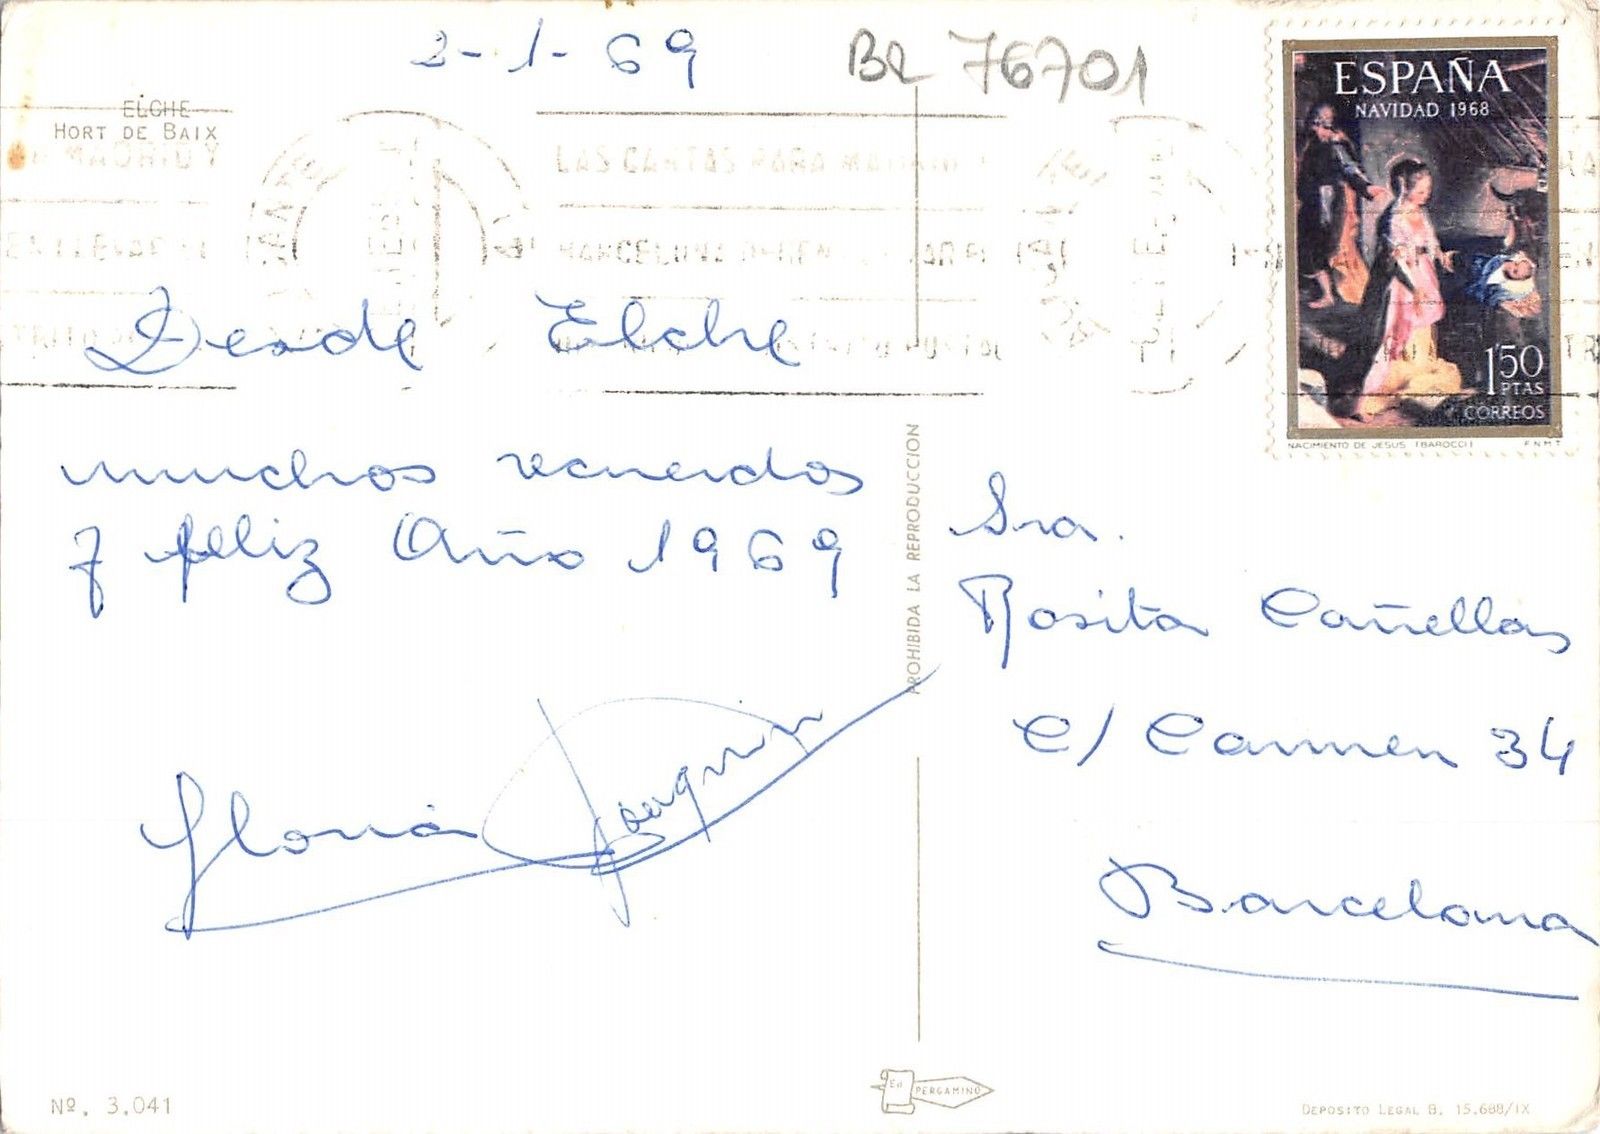 2-1-69
BR 76701
ELCHE
HORT DE BAIX
LAS CARTAS PARA
Desde Elche
muchos recuerdos
y feliz Año 1969
Gloria Joaquin
PROHIBIDA LA REPRODUCCION
ESPAÑA
NAVIDAD 1968
1'50
PTAS
CORREOS
NACIMIENTO DE JESUS (BAROCCI) F.N.M.T.
Sra.
Rosita Cañellas
C/ Carmen 34
Barcelona
Nº. 3.041
Ed. PERGAMINO
DEPOSITO LEGAL B. 15.688/IX